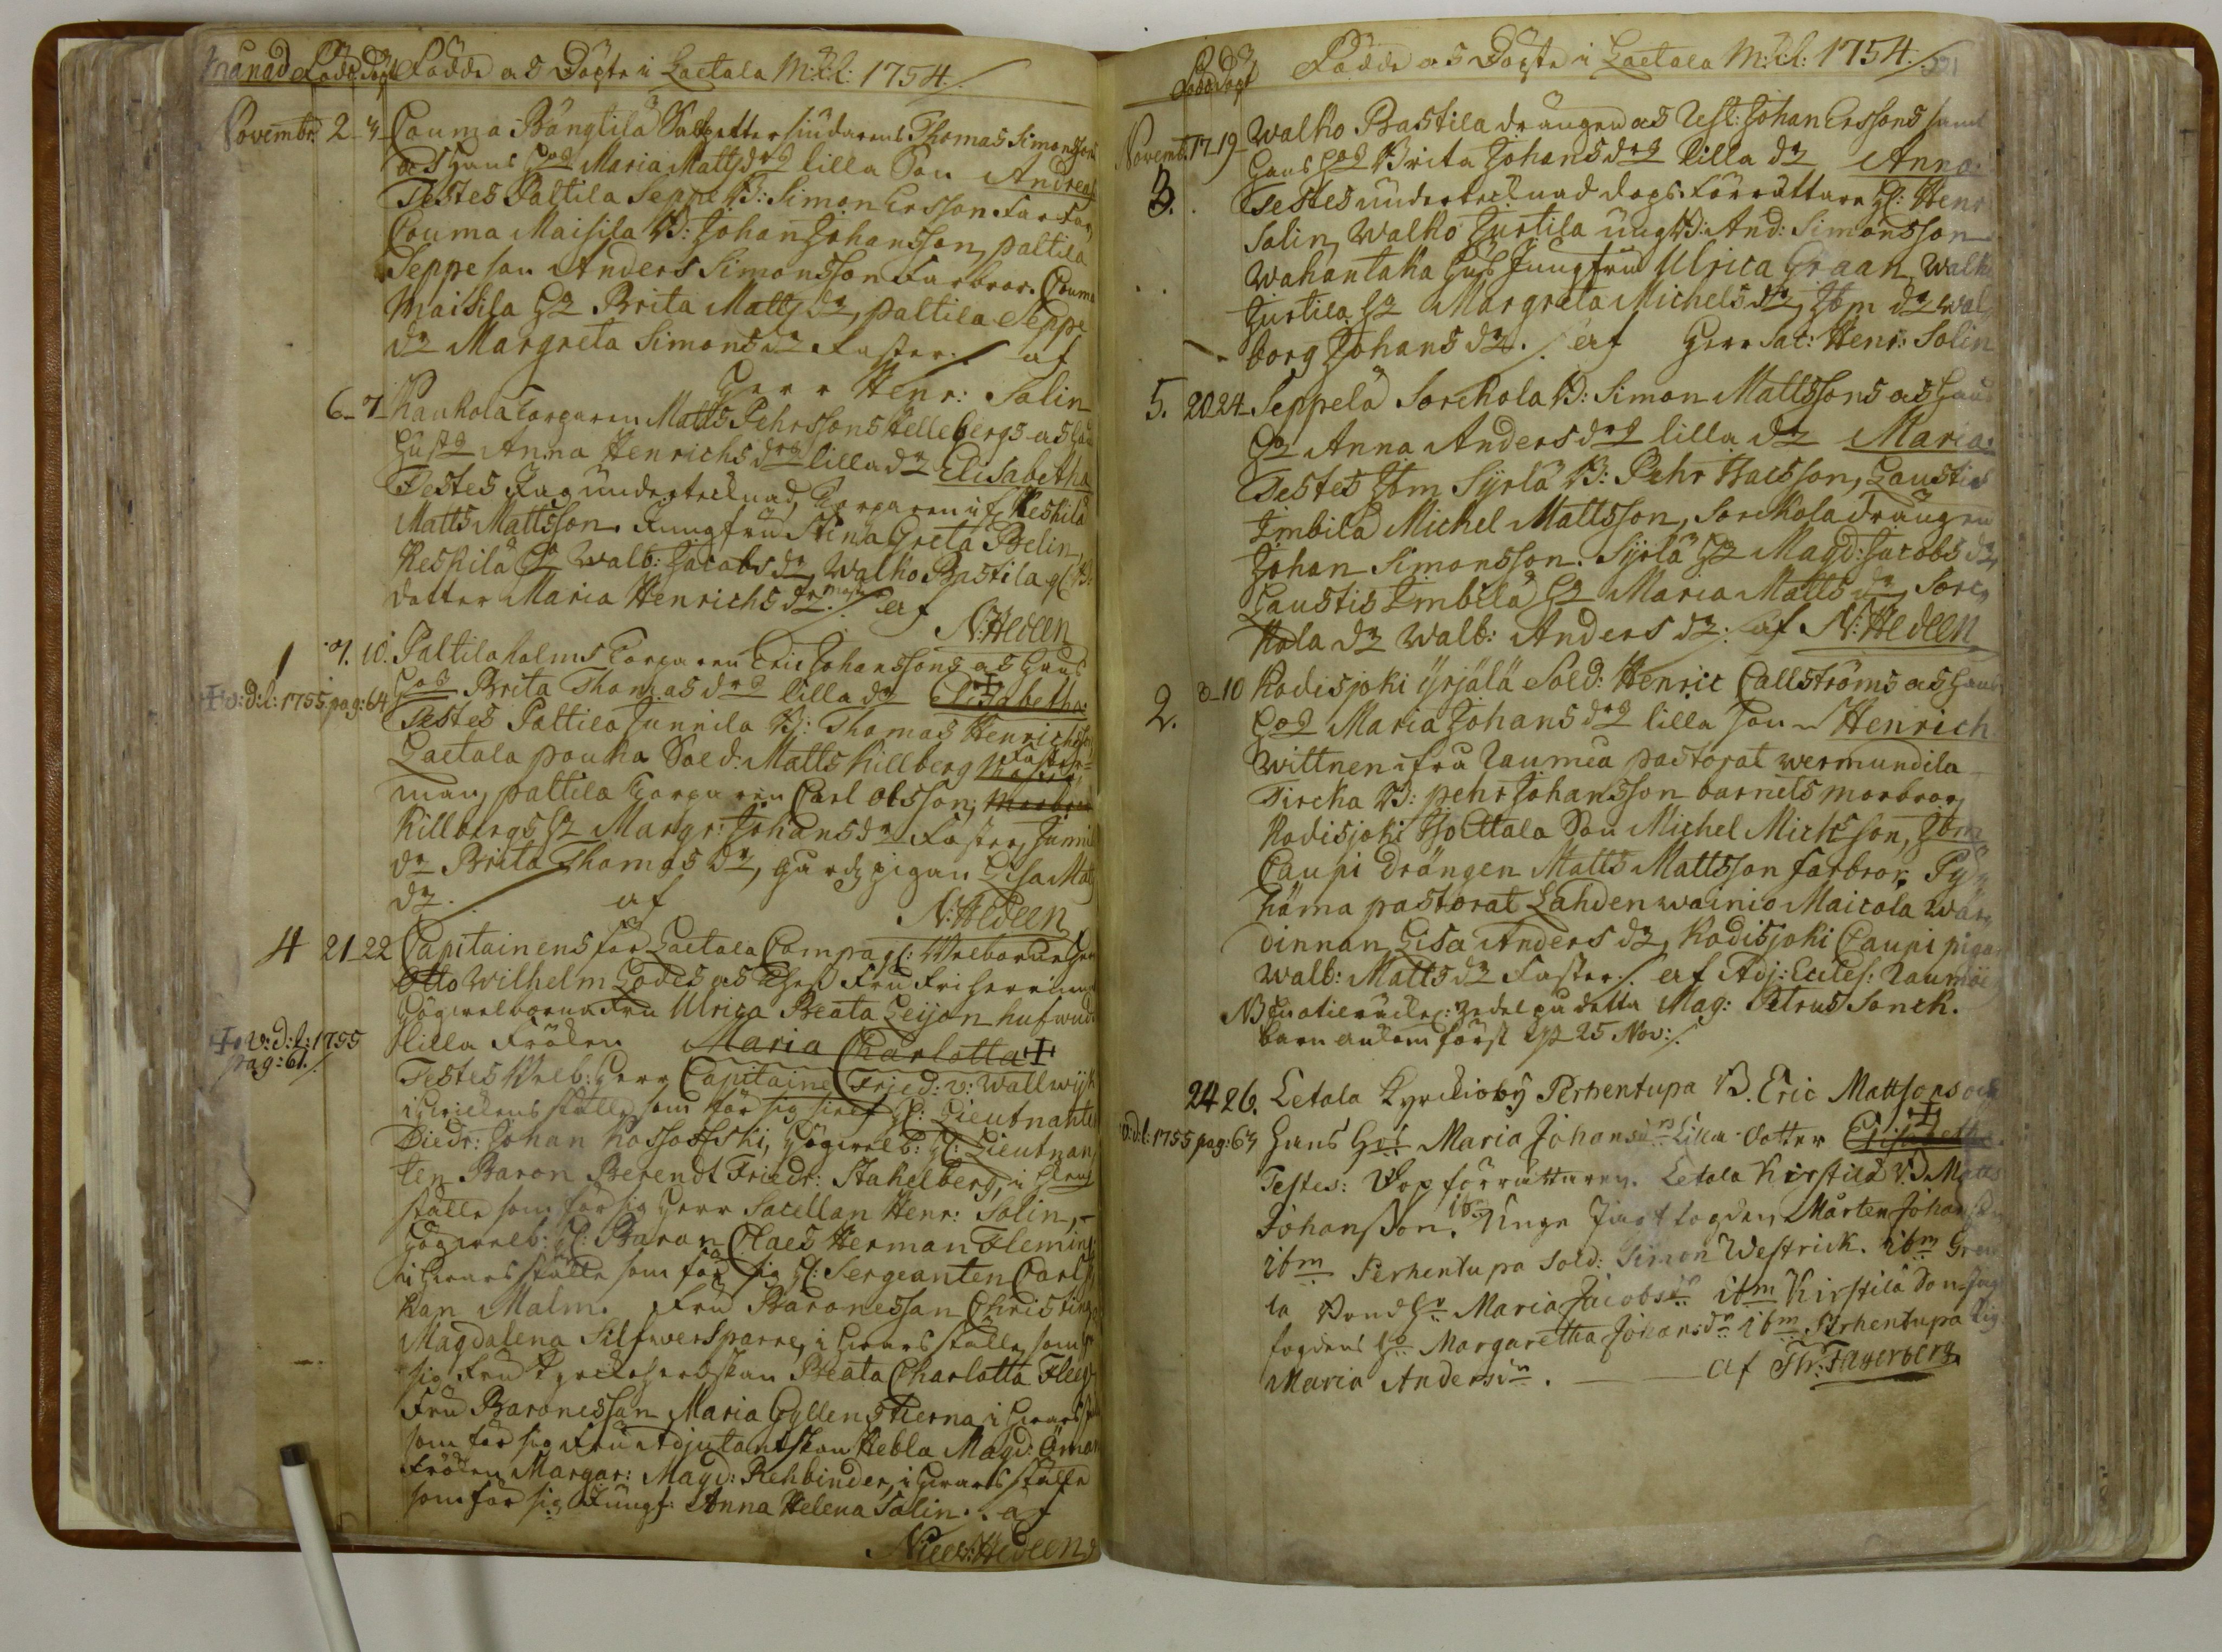 Månad Född Döpt Födde o⁠ch Döpte i Laetala M:k:l: 1754.
Novembr. 2_4 Couma Bängtila Thomas Simonssons
och Hans Ho⁠s Maria Matts drs lilla Son Andreas
Testes Paltila Seppe B: Simon Ersson Farfar,
Couma Maisila B: Johan Johansson, paltila
Seppe son Anders Simonsson Farbror. Couma
Maisila H⁠o Brita Matts dr, paltila Seppe
dr Margreta Simons dr Faster. af
Herr Henr: Salin
6_7 Kaukola Torparen Matts Pehrssons Hellebergs och
Hust⁠s Anna Henrichs drs lilla dr Elisabetha
Testes Jag undertecknad, Torparen if Keskilä
Matts Mattsson. Jungfru Stina Greta Belin,
Keskilä Walb: Jacobs dr, Walko Bastila
dotter Maria Henrichs dr. af
N: Hedeen
1 7. 10. Paltila holms Torparen Eric Johanssons och Hans
v:d:l: 1755 pag: 64 Brita Thomas drs lilla dr Elisabetha
Testes Paltila Junnila B: Thomas Henrichsson
Laetala pouka Sold: Matts Killberg Faster-
man, paltila Torparen Carl Olsson,
Killbergs H⁠o Margr: Johans dr Faster, Junnila
dr Brita Thomas dr, gårdz pigan Lisa Matts
dr. af
N: Hedeen
4 21_22 Capitainens för Laetala Comp:
Otto Wilhelm Godes och Fru Friherrinnan
Högwälborna Fru Ulrica Beata Leijonhufwuds
v:d:l: 1755 pag: 61. lilla Fröken Maria Charlotta
Testes Welb: Herr Capitaine Fried: v: Wallwijk
i hwilkens ställe som för sig sielf H: Lieutnanten
Diedr: Johan Kossoffski, Högwelb: H: Lieutnan-
ten Baron Berendt Friedr: Stakelberg, i hwars
ställe som för sig Herr Sacellan Henr: Salin,
Högwelb: H: Baron Claes Herman Fleming
i hwars ställe som för sig H: Sergeanten Carl
Malm. Fru Baronessan Christina
Magdalena Silfwersparre, i hwars ställe som för
sig Fru Beata Charlotta
Fru Baronessan Maria Gyllenstierna i hwars ställe
som för sig Fru Adjutantskan Hebla Magd:
Fröken Margar: Magd: Rehbinder, i hwars ställe
som för sig Jungf: Anna Helena Salin. af
Nils: Hedeen
Född Döpt Födde och Döpte i Laetala M:k:l: 1754.
Novemb: 17_19 Walko Bastila drängen och Ust: Johan Erssons samt
Hans Brita Johans drs lilla dr Anna.
3. Testes undertecknad dops förrättare H: Henr
Salin, Walko Jurtila ung B: And: Simonsson
Wahantaka Jungfru Ulrica Graan, Walko
Jurtila H⁠o Margreta Michels dr, Ibm dr Wal-
borg Johans dr. af Herr Sac: Henr: Salin
5. 20 24 Seppelä Sorckola B: Simon Mattssons och Hans
Anna Anders drs lilla dr Maria
Testes Ibm Syrlä B: Pehr Isacsson, Laustis
Imbilä Michel Mattsson, Sorckola drängen
Johan Simonsson. Syrlä H⁠o Magd: Jacobs dr,
Laustis Imbilä H⁠o Maria Matts dr, Sorc-
kola dr Walb: Anders dr. af N: Hedeen
2. 3_10 Kodisjoki Yrjälä Sold: Henric Callströms och Hans
Maria Johans drs lilla son Henrich
Wittnen ifrå Raumea pastorat wermundila
Tircka B: pehr Johansson barnets morbror,
Kodisjoki Holttala Son Michel Michsson, Ibm
Caupi Drängen Matts Mattsson farbror. Py-
häma pastorat Lahdenwainio Maicola Wär-
dinnan Lisa Anders dr, Kodisjoki Caupi pigan
Walb: Matts dr Faster. af Adj: Eccles: Raumoe
NB Zedel på detta Mag: Petrus Sonck.
barn ankom först 25 Nov:
24 26. Letala Kyrckioby Perhentupa B. Eric Mattsons och
v:d:l: 1755 pag: 64 Hans Maria Johans dr Lilla dotter Elisabetha
Testes: Dopförrättaren. Letala Kirstilä B. Matts
Johansson. ibm Unge Mårten Johansson
ibm Perhentupa Sold: Simon Westrick. ibm
la Bond Maria Jacobs dr ibm Kirstilä
fogdens Margaretha Johans dr ibm Perhentupa Pig:
Maria Anders dr. af Th: Fagerberg